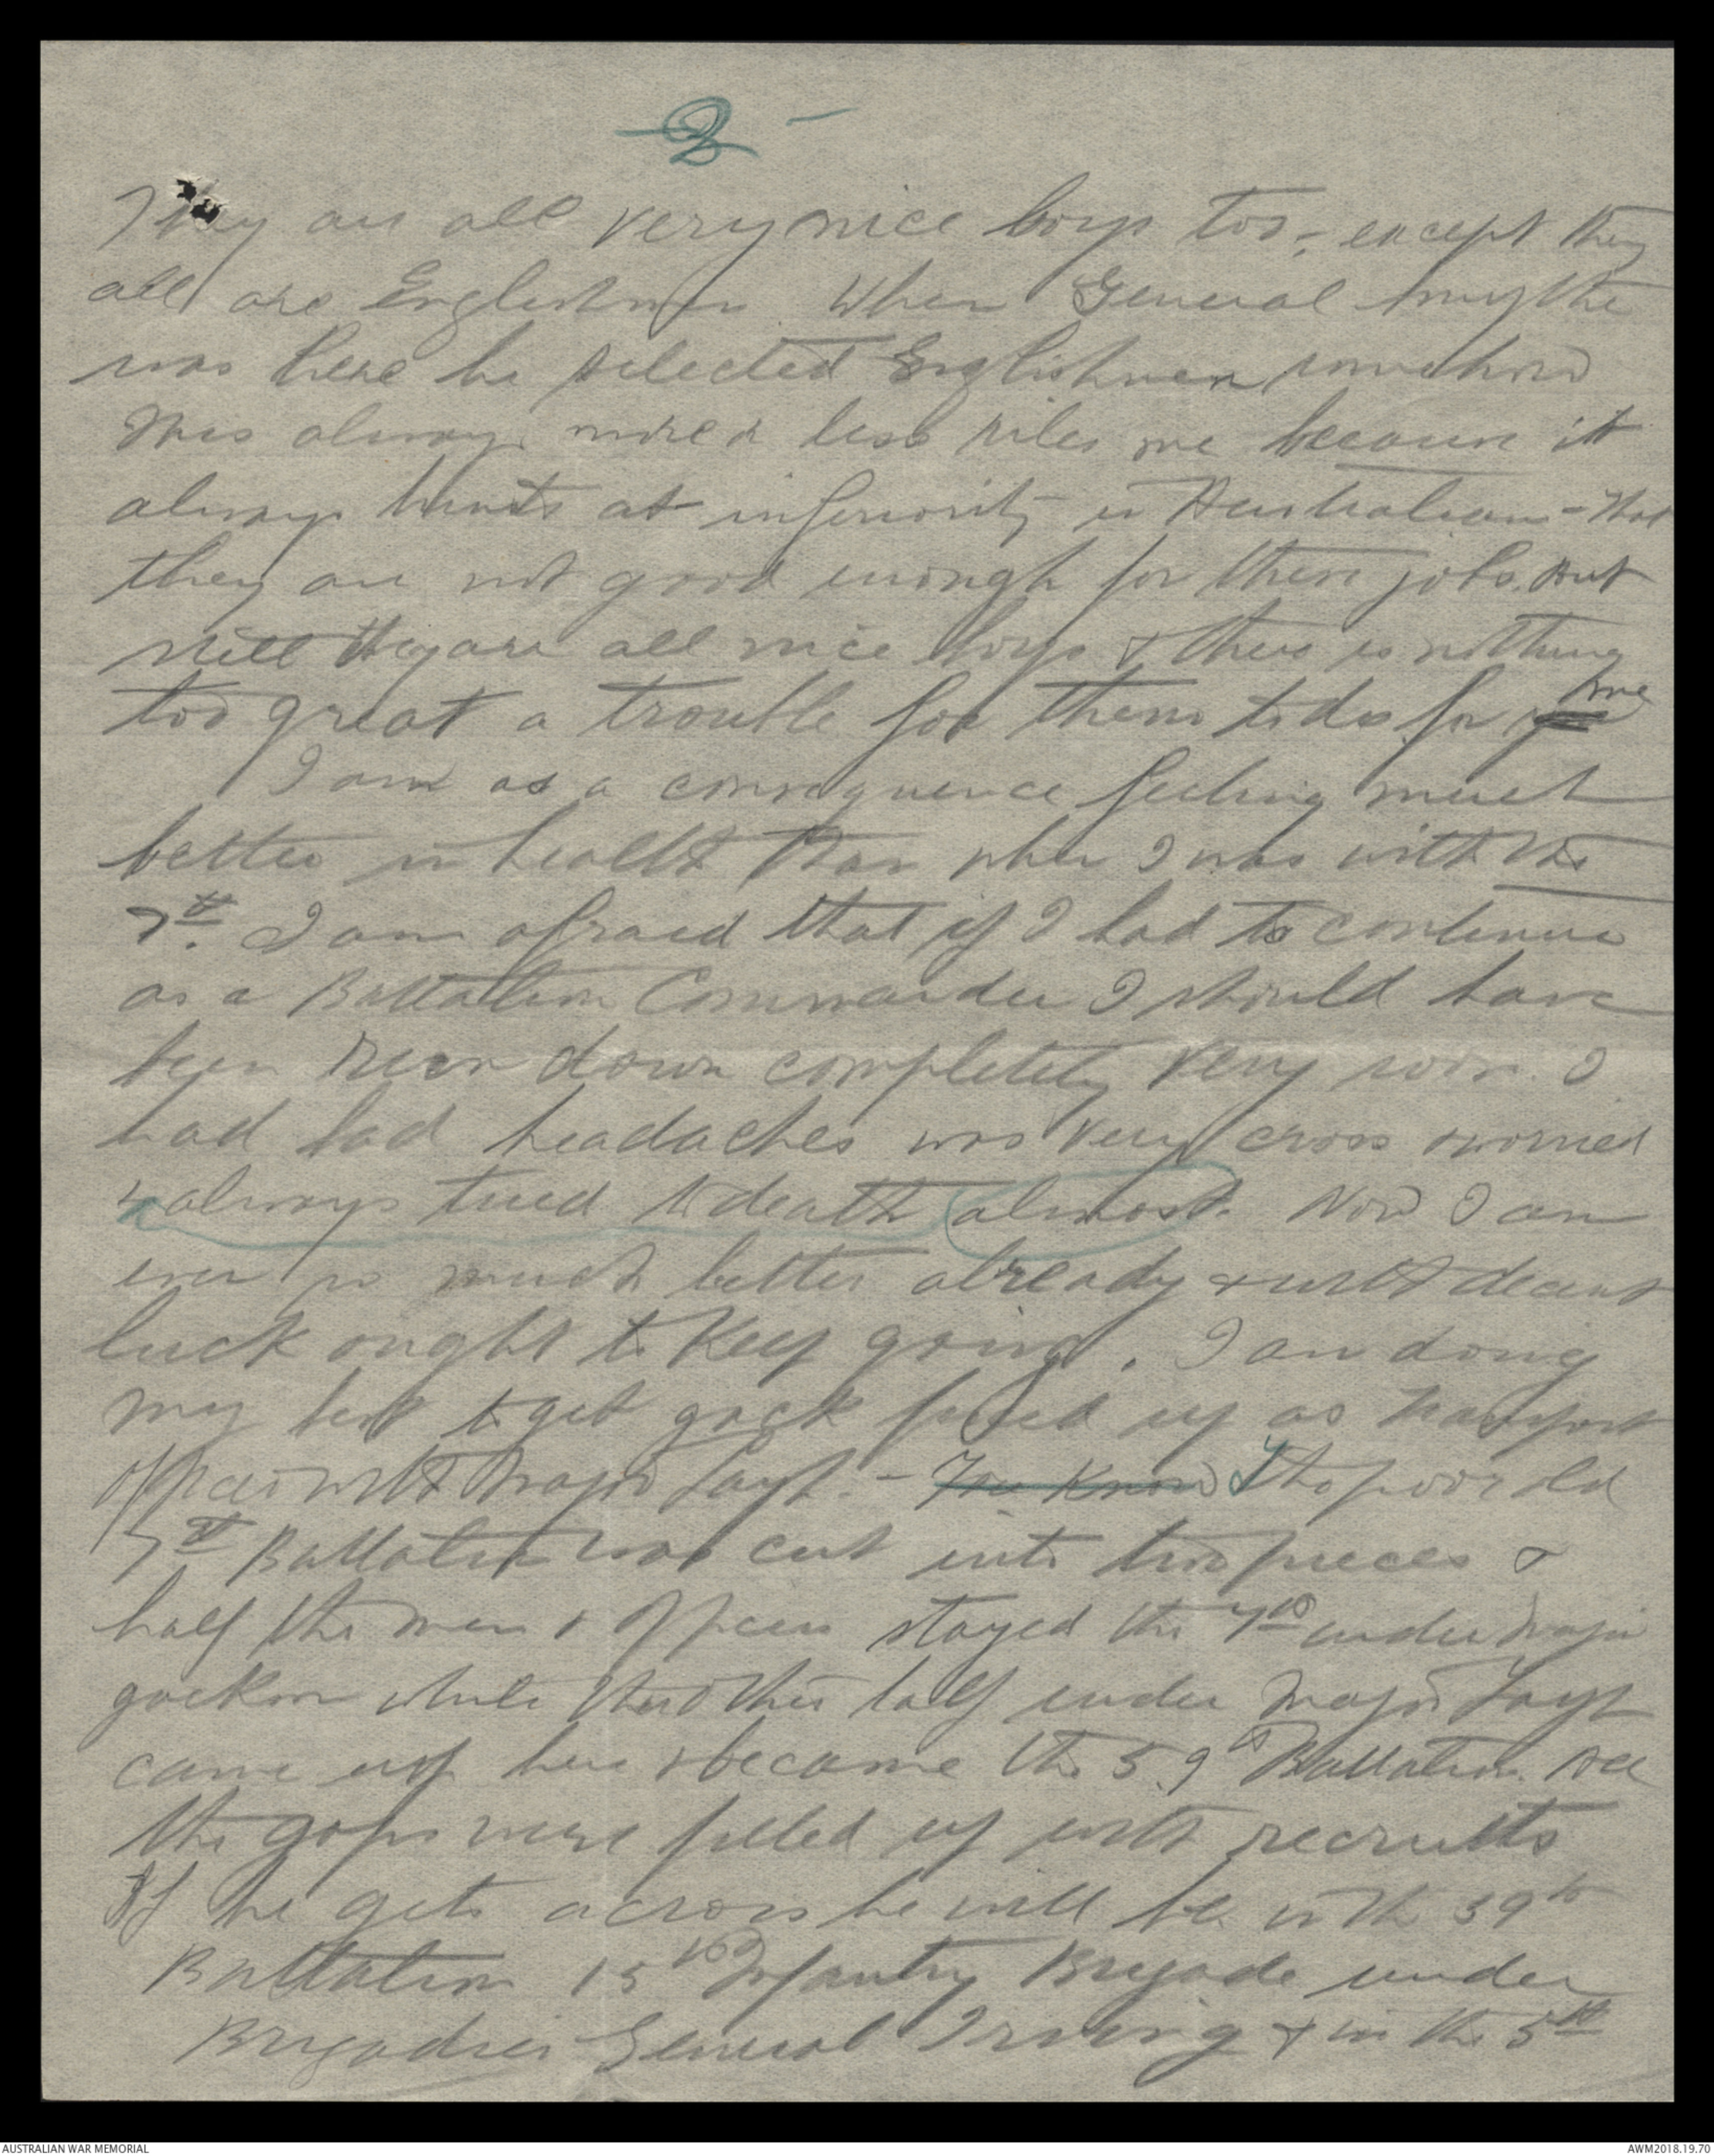 2 -
They are all very nice boys too, - except they
all are Englishmen. When General Smythe
was here he selected Englishmen somehow
This always more or less riles me because it
always hints at inferiority in Australians - that
they are not good enough for these jobs. But
still they are all nice boys & there is nothing
too great a trouble for them to do for me
I am as a consequence feeling much
better in health than when I was with the
7th. I am afraid that if I had to continue
as a Battalion Commander I should have
been run down completely very soon. I
had bad headaches was very cross & worried
& always tired to death almost. Now I am
ever so much better already & with decent
luck ought to keep going. I am doing
my best to get Jack fixed up as Transport
officer with Major Layh. - You know the poor old
7th Battalion was cut into two pieces &
half the men & officers stayed the 7th under Major
Jackson while the other half under Major Layh
came up here & became the 59th Battalion. All
the gaps were filled up with recruits
If he gets across he will be in the 59th
Battalion 15th Infantry Brigade under
Brigadier General Irving & in the 5th
AUSTRALIAN WAR MEMORIAL
AWM2018.19.70